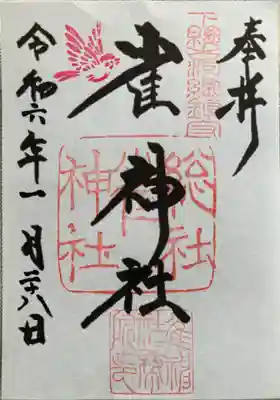 奉拝
雀神社
令和六年一月二十八日
下総源総鎮守
総社
雀
神社